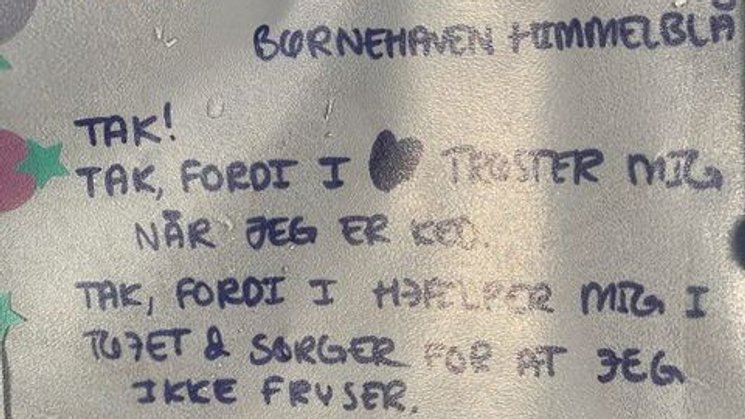 BØRNEHAVEN HIMMELBLÅ
TAK!
TAK, FORDI I TRØSTER MIG
NÅR JEG ER KED.
TAK, FORDI I HJÆLPER MIG I
TØJET & SØRGER FOR AT JEG
IKKE FRYSER.